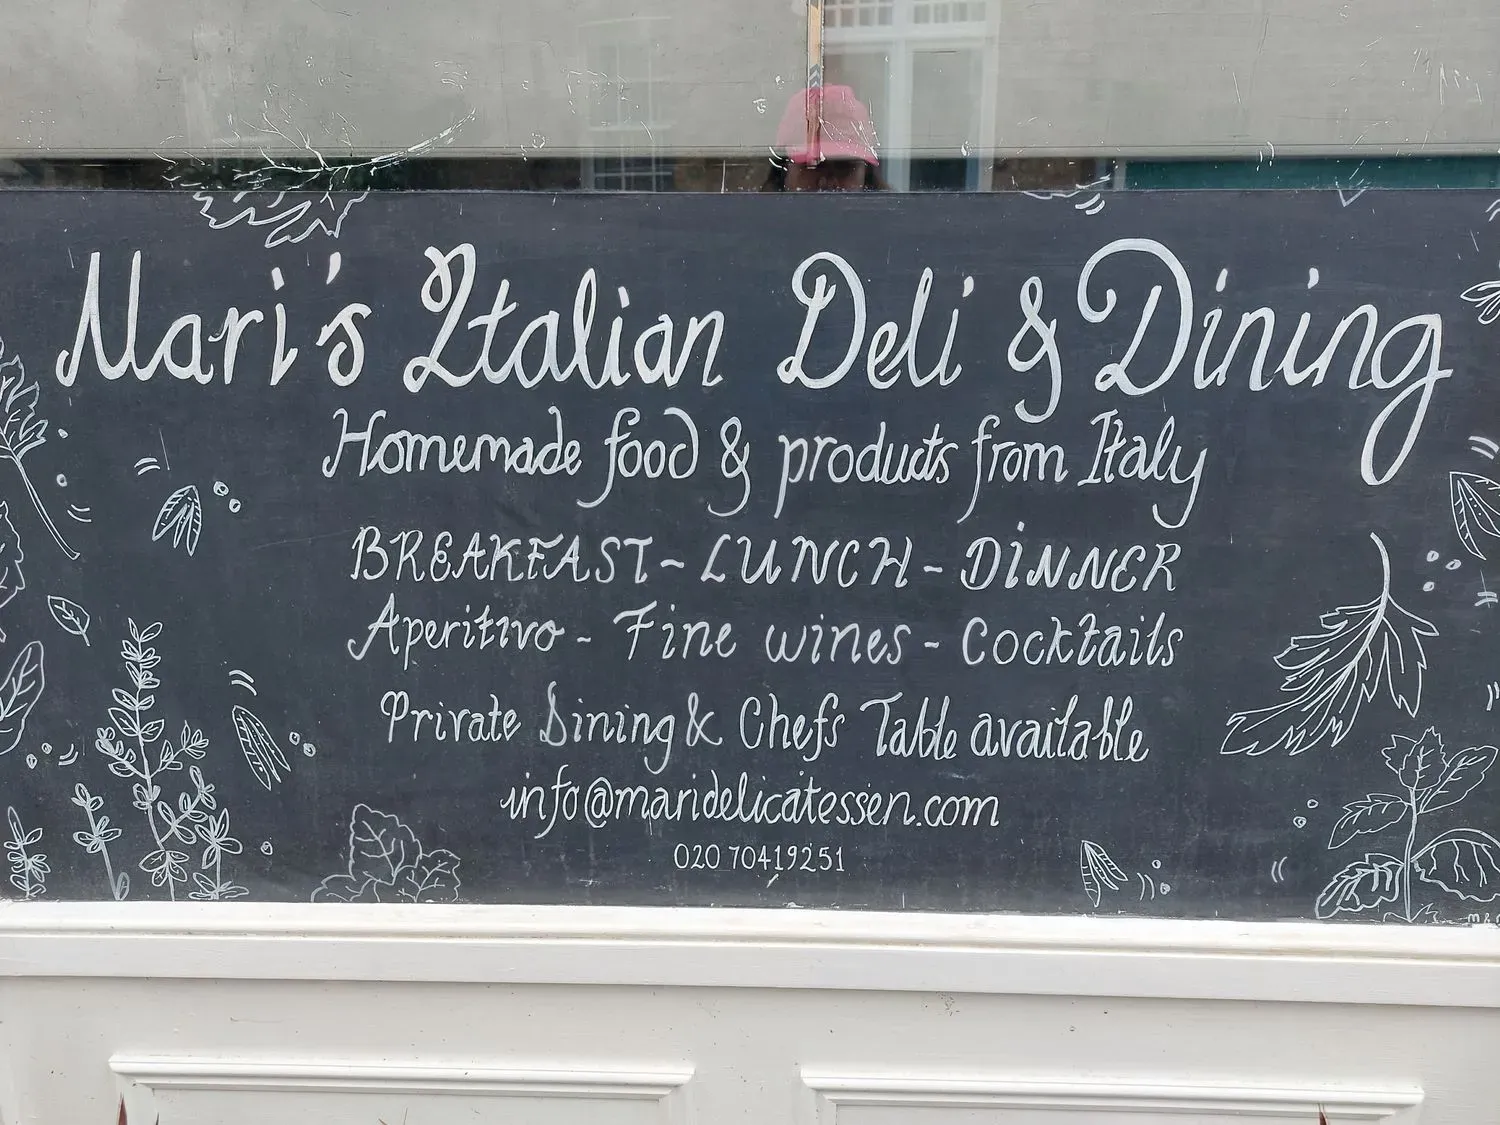 Mari's Italian Deli & Dining
Homemade food & products from Italy
BREAKFAST - LUNCH - DINNER
Aperitivo - Fine wines - Cocktails
Private Dining & Chefs Table available
info@maridelicatessen.com
020 70419251